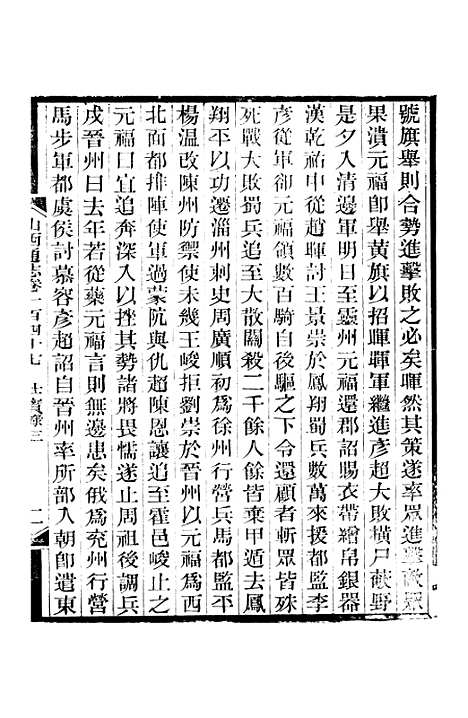 號旗舉則合勢進擊敗之必矣暉然其策遂率眾進擊敵眾
果潰元福卽舉黃旗以招暉暉軍繼進彥超大敗橫尸蔽野
是夕入清邊軍明日至靈州元福還郡詔賜衣帶繒帛銀器
漢乾祐中從趙暉討王景崇於鳳翔蜀兵數萬來援都監李
彥從軍卻元福領數百騎自後驅之下令還顧者斬眾皆殊
死戰大敗蜀兵追至大散關殺二千餘人餘皆棄甲遁去鳳
翔平以功遷淄州刺史周廣順初爲徐州行營兵馬都監平
楊温改陳州防禦使未幾王峻拒劉崇於晉州以元福爲西
北面都排陣使軍過蒙阬與仇超陳思讓追至霍邑峻止之
元福曰宜追奔深入以挫其勢諸將畏懦遂止周祖後調兵
戍晉州曰去年若從藥元福言則無邊患矣俄爲兖州行營
馬步軍都虞侯討慕容彥超詔自晉州率所部入朝卽遣東
山西通志卷一百四十七 仕實錄三 二